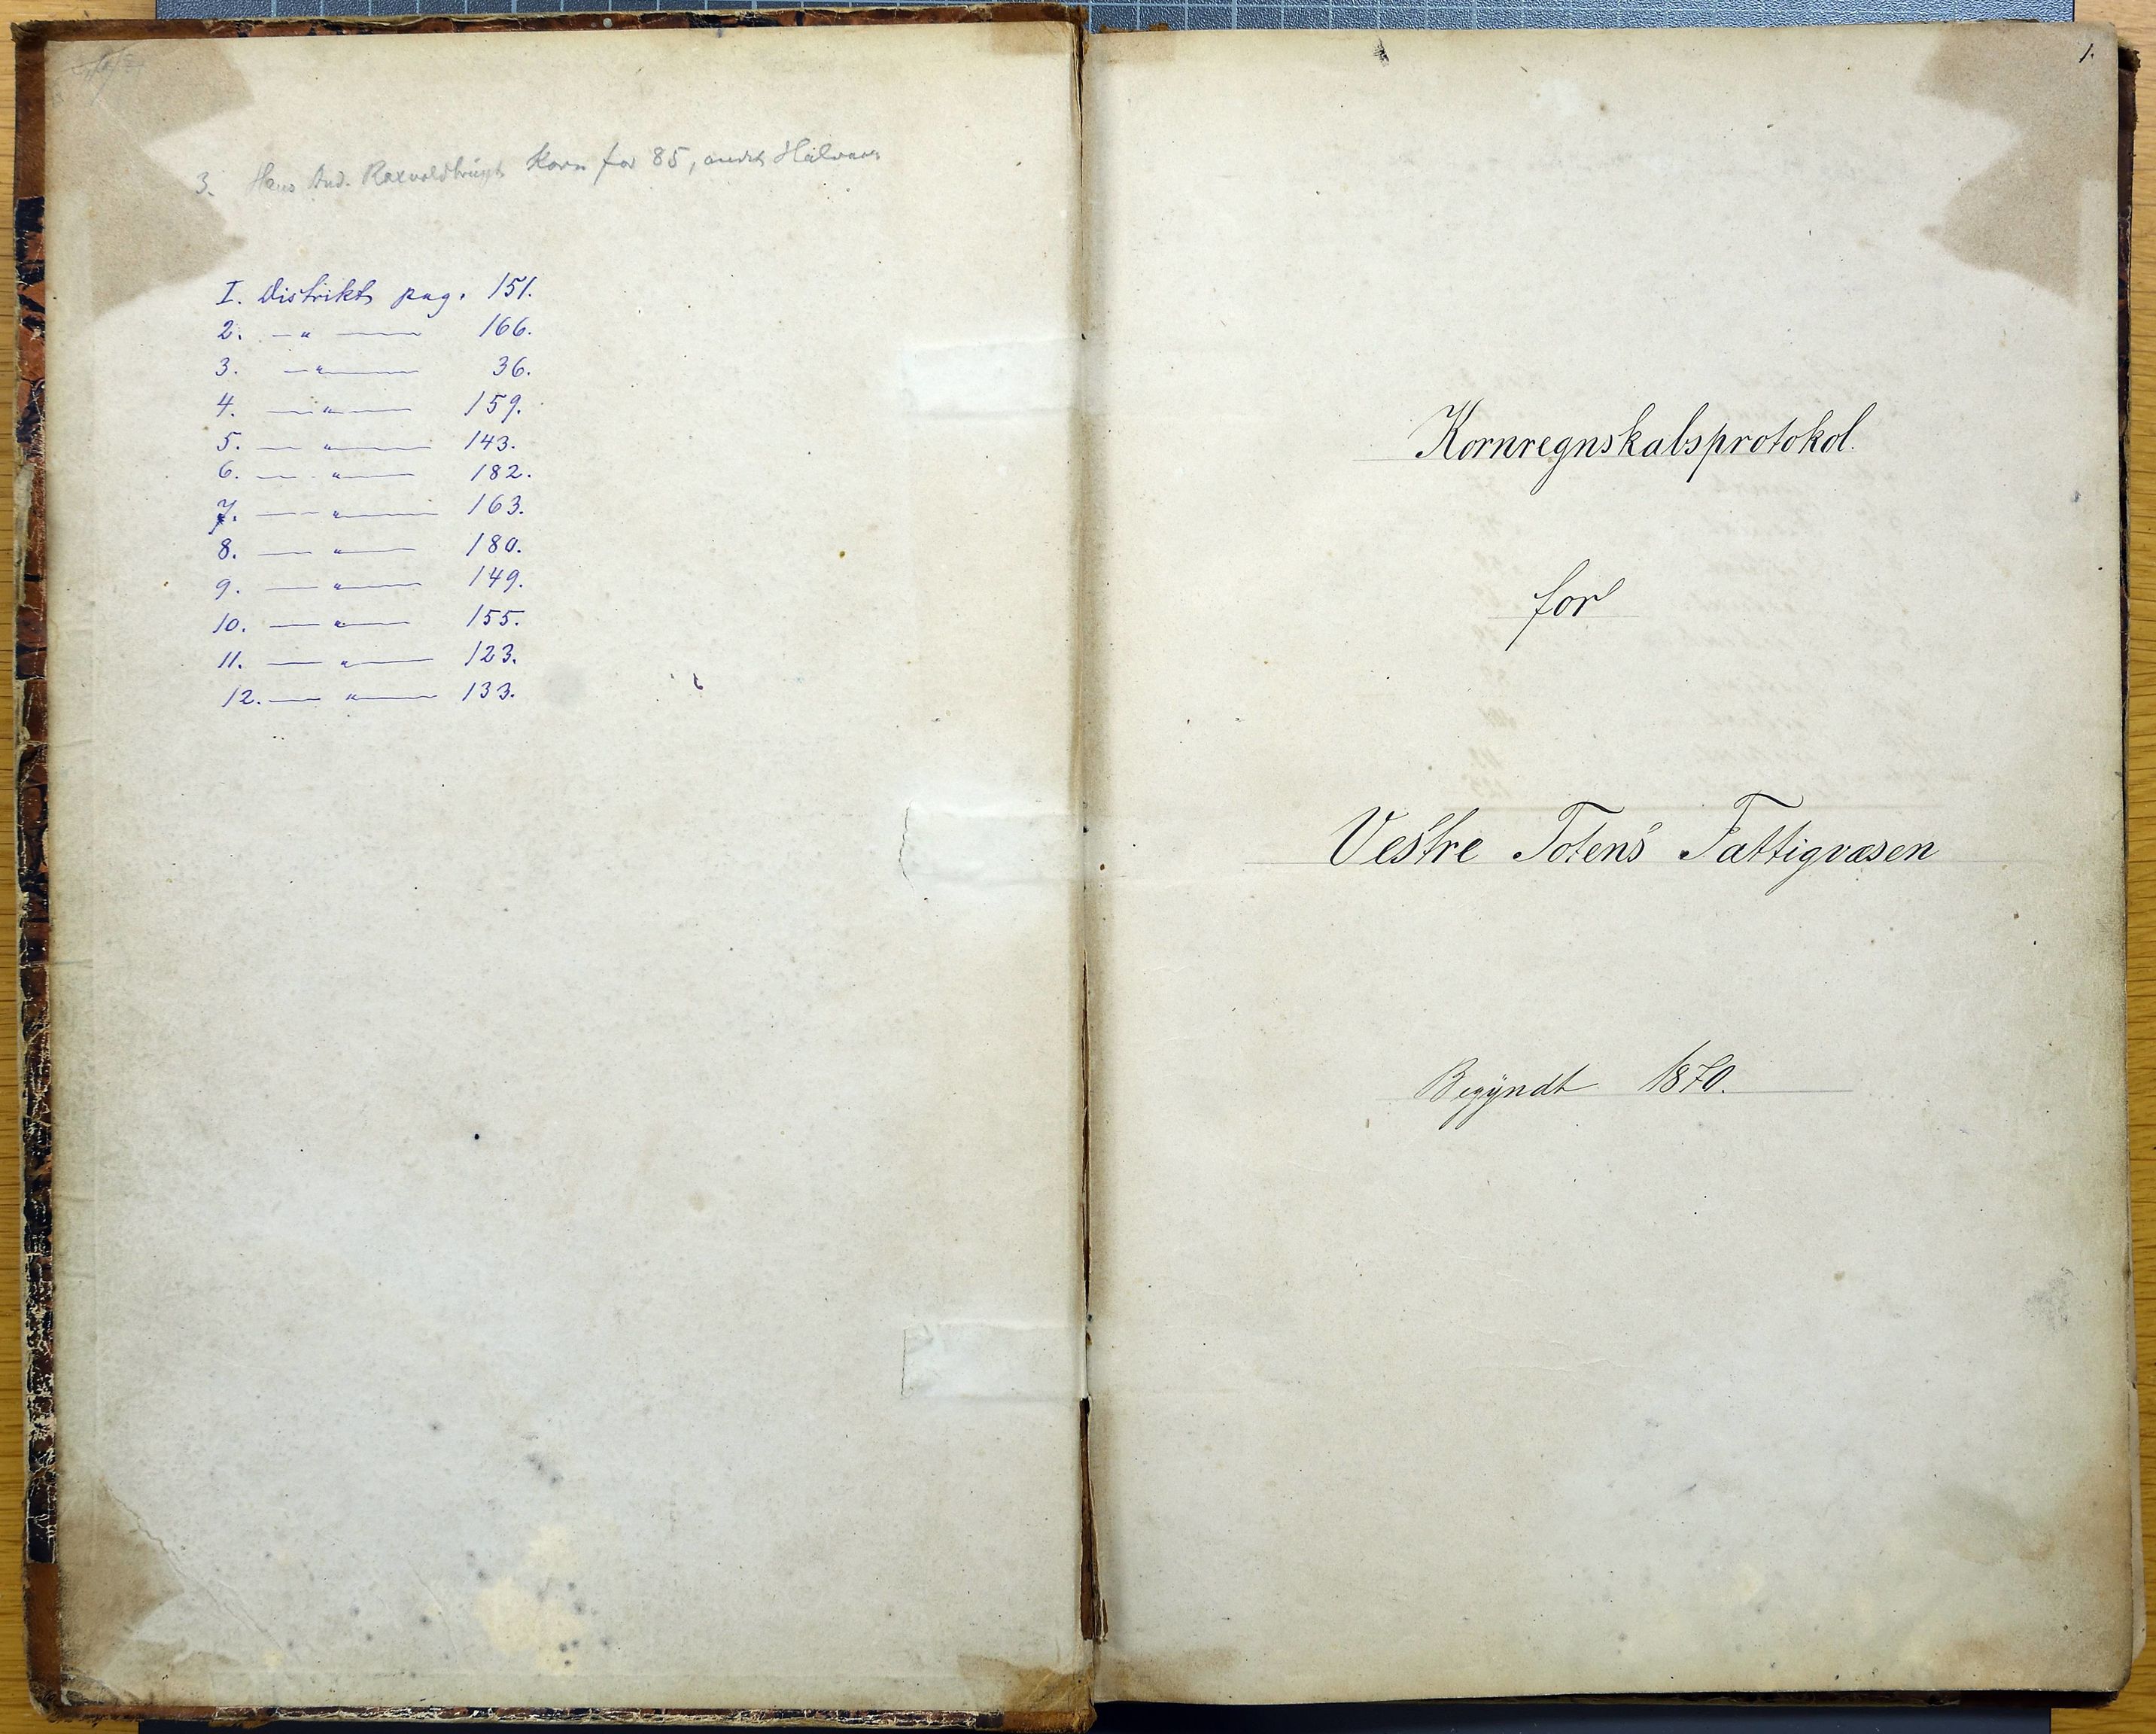 3. Hans And. Korn for 85, andet Halvaar
I. Distrikt pag. 151.
2. — " — 166.
3. — " — 36.
4. — " — 159.
5. — " — 143.
6. — " — 182.
7. — " — 163.
8. — " — 180.
9. — " — 149.
10. — " — 155.
11. — " — 123.
12. — " — 133.
1.
Kornregnskabsprotokol.
for
Vestre Totens Fattigvæsen
Begyndt 1870.